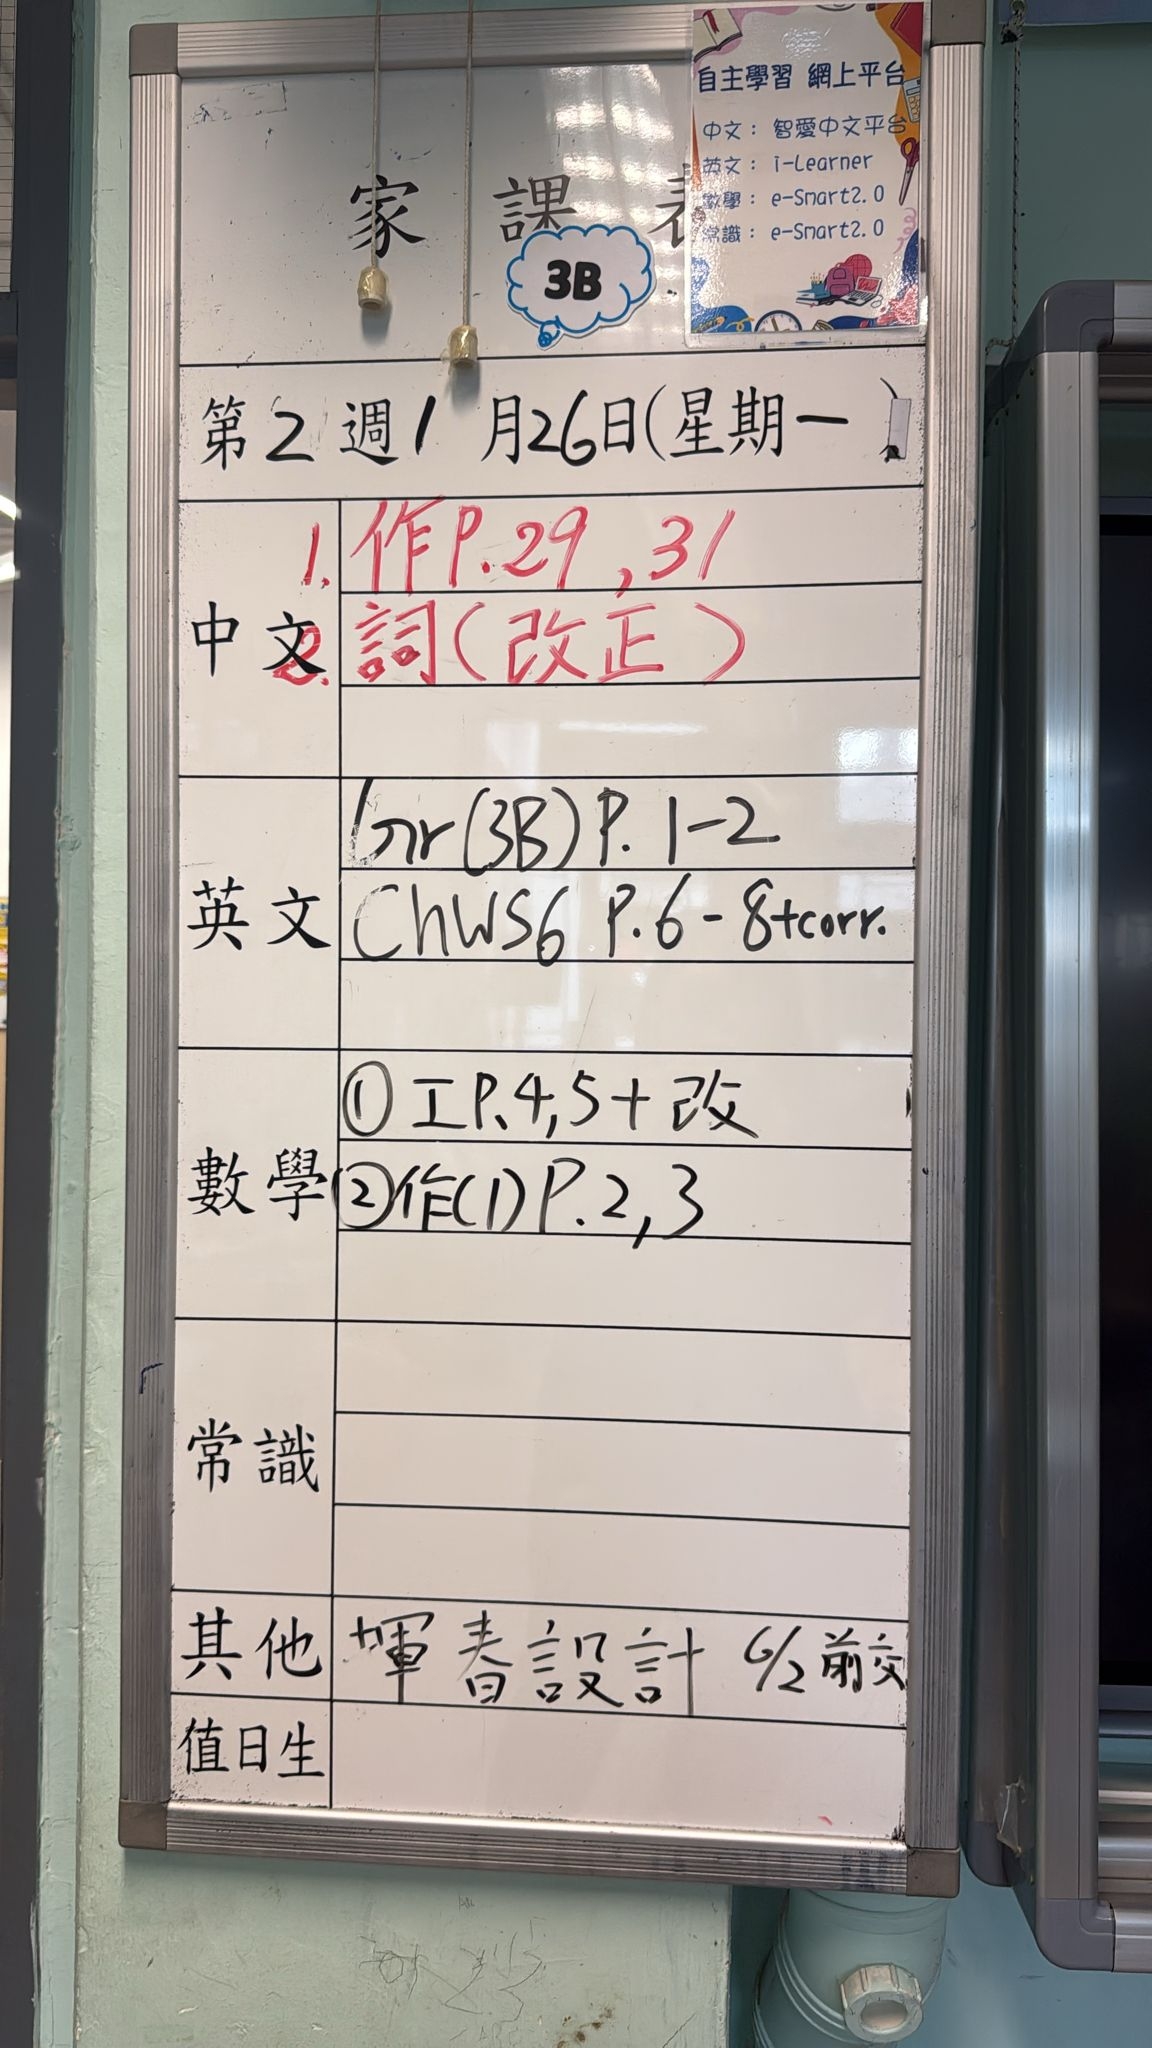 自主學習 網上平台
中文： 智愛中文平台
英文： i-Learner
數學： e-Smart2.0
常識： e-Smart2.0
家 課 表
3B
第 2 週 1 月 26 日 (星期一 )
中文
1. 作P.29, 31
2. 詞(改正)
英文
Gr(3B) P. 1-2
ChWS6 P.6-8+corr.
數學
① 工P.4,5+改
② 作(1) P.2,3
常識
其他
揮春設計 6/2前交
值日生